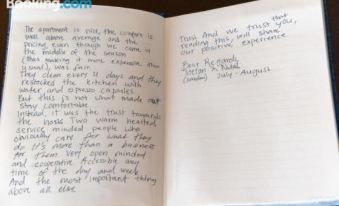 Booking.com
The apartment is nice, the comfort is
well above average and the
pricing even though we came in
the middle of the season
(thus making it more expensive than
usual), was fair.
They clean every 4 days and they
restocked the kitchen with
water and espresso capsules.
But this is not what made our
stay comfortable
Instead, it was the trust towards
the hosts Two warm hearted
service minded people who
obviously care for what they
do It's more than a business
for them. Very open minded
and cooperative Accessible any
time of the day and week
And the most important thing
above all else
Trust And we trust that you,
reading this, will share
our positive experience
Best Regards,
Stefan &
July - August